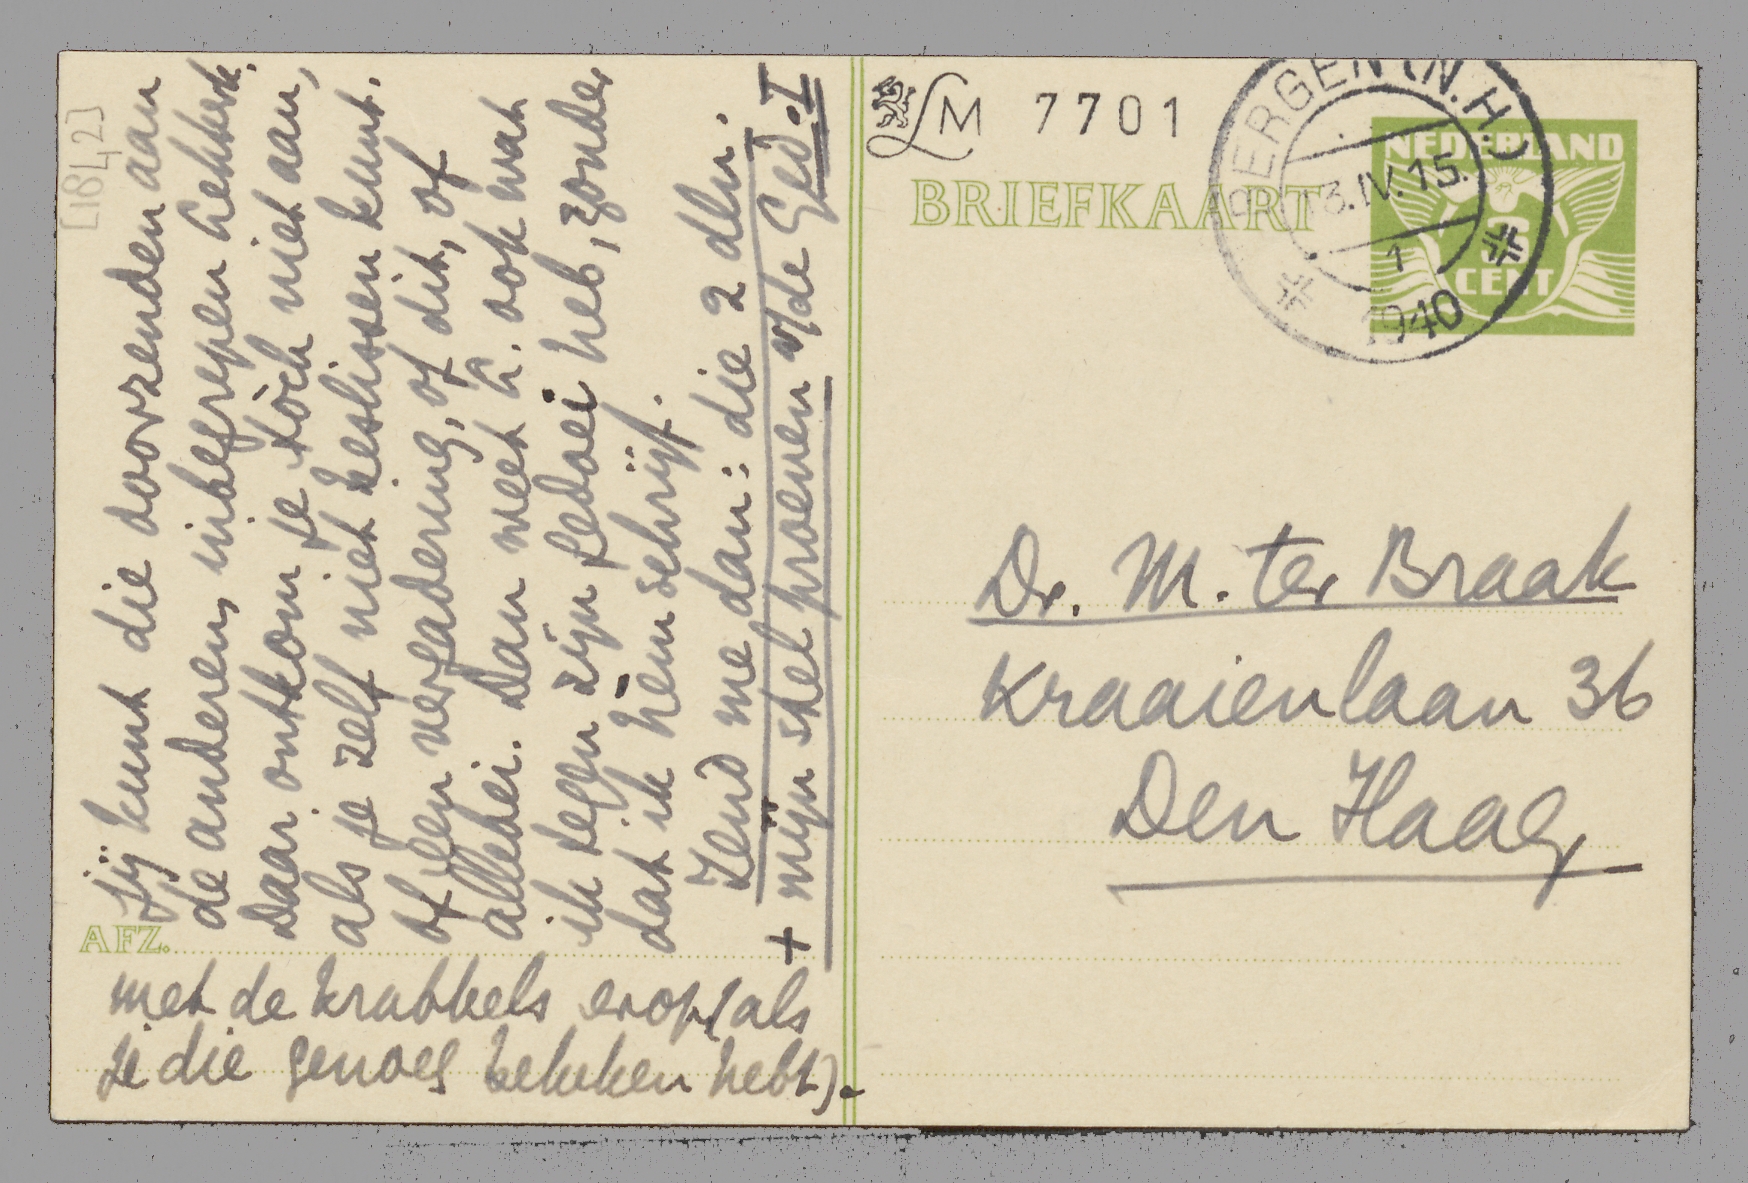 [1842]
Jij kunt die doorzenden aan
de anderen, inbegrepen Gekkerk.
Daar ontkom je tòch niet aan,
als je zelf niet beslissen kunt.
of een vergadering, of dit, of
allebei. Dan weet G. ook wat
ik tegen zijn gedoei heb, zonder
dat ik hem schrijf.
Zend me dan: die 2 dln.
+ mijn stel proeven v/de Ged. I
met de krabbels erop (als
je die genoeg bekeken hebt).
AFZ.
LM 7701
BRIEFKAART
BERGEN (N.H.)
13.IV.15.
1
1940
NEDERLAND
3
CENT
Dr. M. ter Braak
Kraaienlaan 36
Den Haag